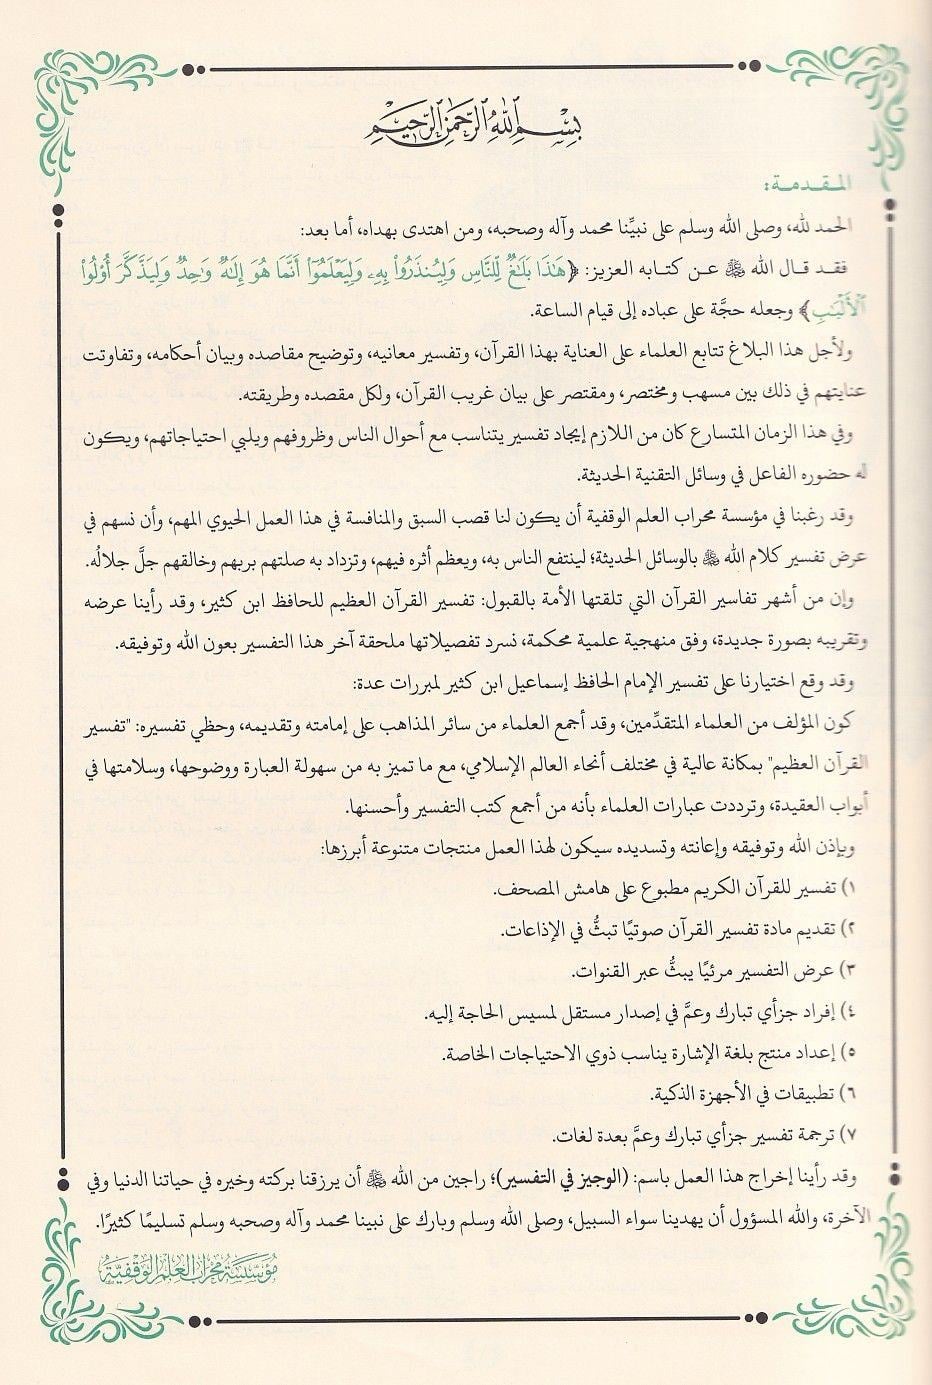 بِسْمِ ٱللَّهِ ٱلرَّحْمَٰنِ ٱلرَّحِيمِ
المقدمة:
الحمد لله، وصلى الله وسلم على نبيِّنا محمد وآله وصحبه، ومن اهتدى بهداه، أما بعد:
فقد قال الله ﷻ عن كتابه العزيز: ﴿هَٰذَا بَلَٰغٌ لِّلنَّاسِ وَلِيُنذَرُوا۟ بِهِۦ وَلِيَعْلَمُوٓا۟ أَنَّمَا هُوَ إِلَٰهٌ وَٰحِدٌ وَلِيَذَّكَّرَ أُو۟لُوا۟
ٱلْأَلْبَٰبِ﴾ وجعله حجَّة على عباده إلى قيام الساعة.
ولأجل هذا البلاغ تتابع العلماء على العناية بهذا القرآن، وتفسير معانيه، وتوضيح مقاصده وبيان أحكامه، وتفاوتت
عنايتهم في ذلك بين مسهب ومختصر، ومقتصر على بيان غريب القرآن، ولكل مقصده وطريقته.
وفي هذا الزمان المتسارع كان من اللازم إيجاد تفسير يتناسب مع أحوال الناس وظروفهم ويلبي احتياجاتهم، ويكون
له حضوره الفاعل في وسائل التقنية الحديثة.
وقد رغبنا في مؤسسة محراب العلم الوقفية أن يكون لنا قصب السبق والمنافسة في هذا العمل الحيوي المهم، وأن نسهم في
عرض تفسير كلام الله ﷻ بالوسائل الحديثة؛ لينتفع الناس به، ويعظم أثره فيهم، وتزداد به صلتهم بربهم وخالقهم جلَّ جلالُه.
وإن من أشهر تفاسير القرآن التي تلقتها الأمة بالقبول: تفسير القرآن العظيم للحافظ ابن كثير، وقد رأينا عرضه
وتقريبه بصورة جديدة، وفق منهجية علمية محكمة، نسرد تفصيلاتها ملحقة آخر هذا التفسير بعون الله وتوفيقه.
وقد وقع اختيارنا على تفسير الإمام الحافظ إسماعيل ابن كثير لمبررات عدة:
كون المؤلف من العلماء المتقدِّمين، وقد أجمع العلماء من سائر المذاهب على إمامته وتقديمه، وحظي تفسيره: "تفسير
القرآن العظيم" بمكانة عالية في مختلف أنحاء العالم الإسلامي، مع ما تميز به من سهولة العبارة ووضوحها، وسلامتها في
أبواب العقيدة، وترددت عبارات العلماء بأنه من أجمع كتب التفسير وأحسنها.
وبإذن الله وتوفيقه وإعانته وتسديده سيكون لهذا العمل منتجات متنوعة أبرزها:
١) تفسير للقرآن الكريم مطبوع على هامش المصحف.
٢) تقديم مادة تفسير القرآن صوتيًا تبثُّ في الإذاعات.
٣) عرض التفسير مرئيًا يبثُّ عبر القنوات.
٤) إفراد جزأي تبارك وعمَّ في إصدار مستقل لمسيس الحاجة إليه.
٥) إعداد منتج بلغة الإشارة يناسب ذوي الاحتياجات الخاصة.
٦) تطبيقات في الأجهزة الذكية.
٧) ترجمة تفسير جزأي تبارك وعمَّ بعدة لغات.
وقد رأينا إخراج هذا العمل باسم: (الوجيز في التفسير)؛ راجين من الله ﷻ أن يرزقنا بركته وخيره في حياتنا الدنيا وفي
الآخرة، والله المسؤول أن يهدينا سواء السبيل، وصلى الله وسلم وبارك على نبينا محمد وآله وصحبه وسلم تسليمًا كثيرًا.
مؤسسة محراب العلم الوقفية